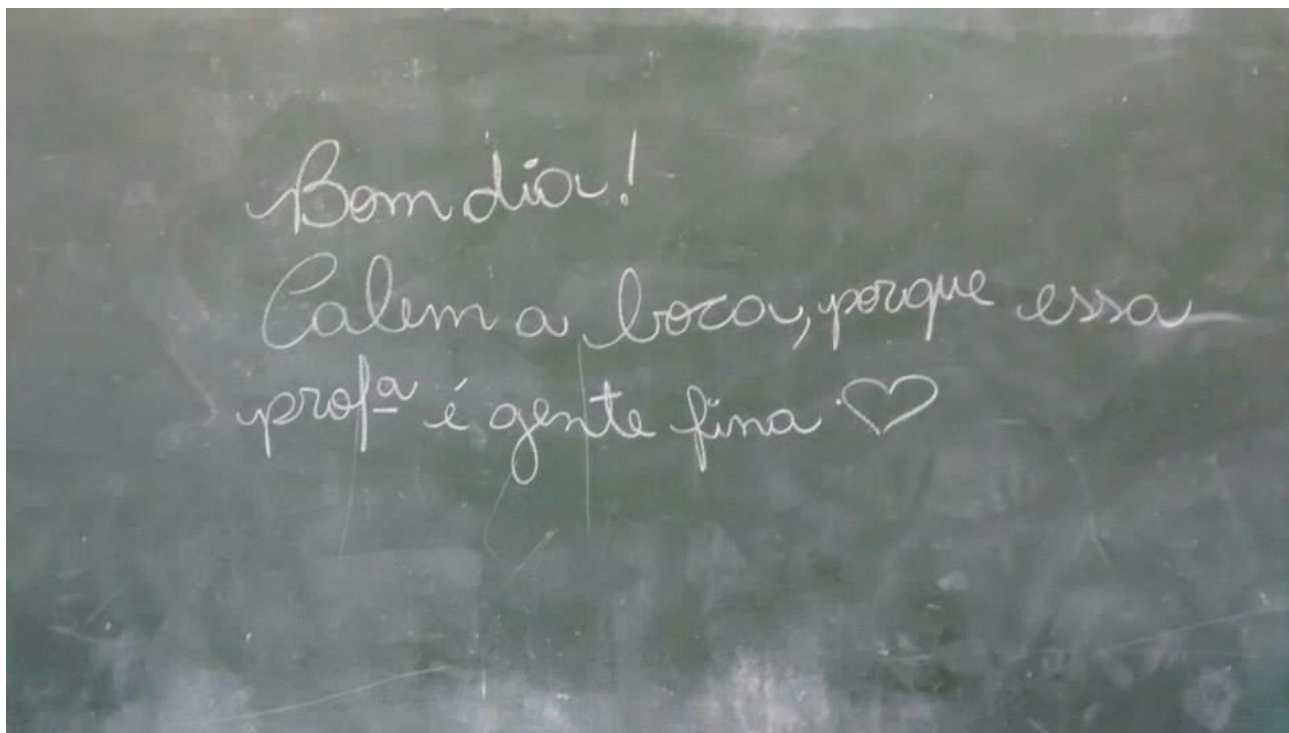 Bom dia!
Calem a boca, porque essa
profª é gente fina ♡